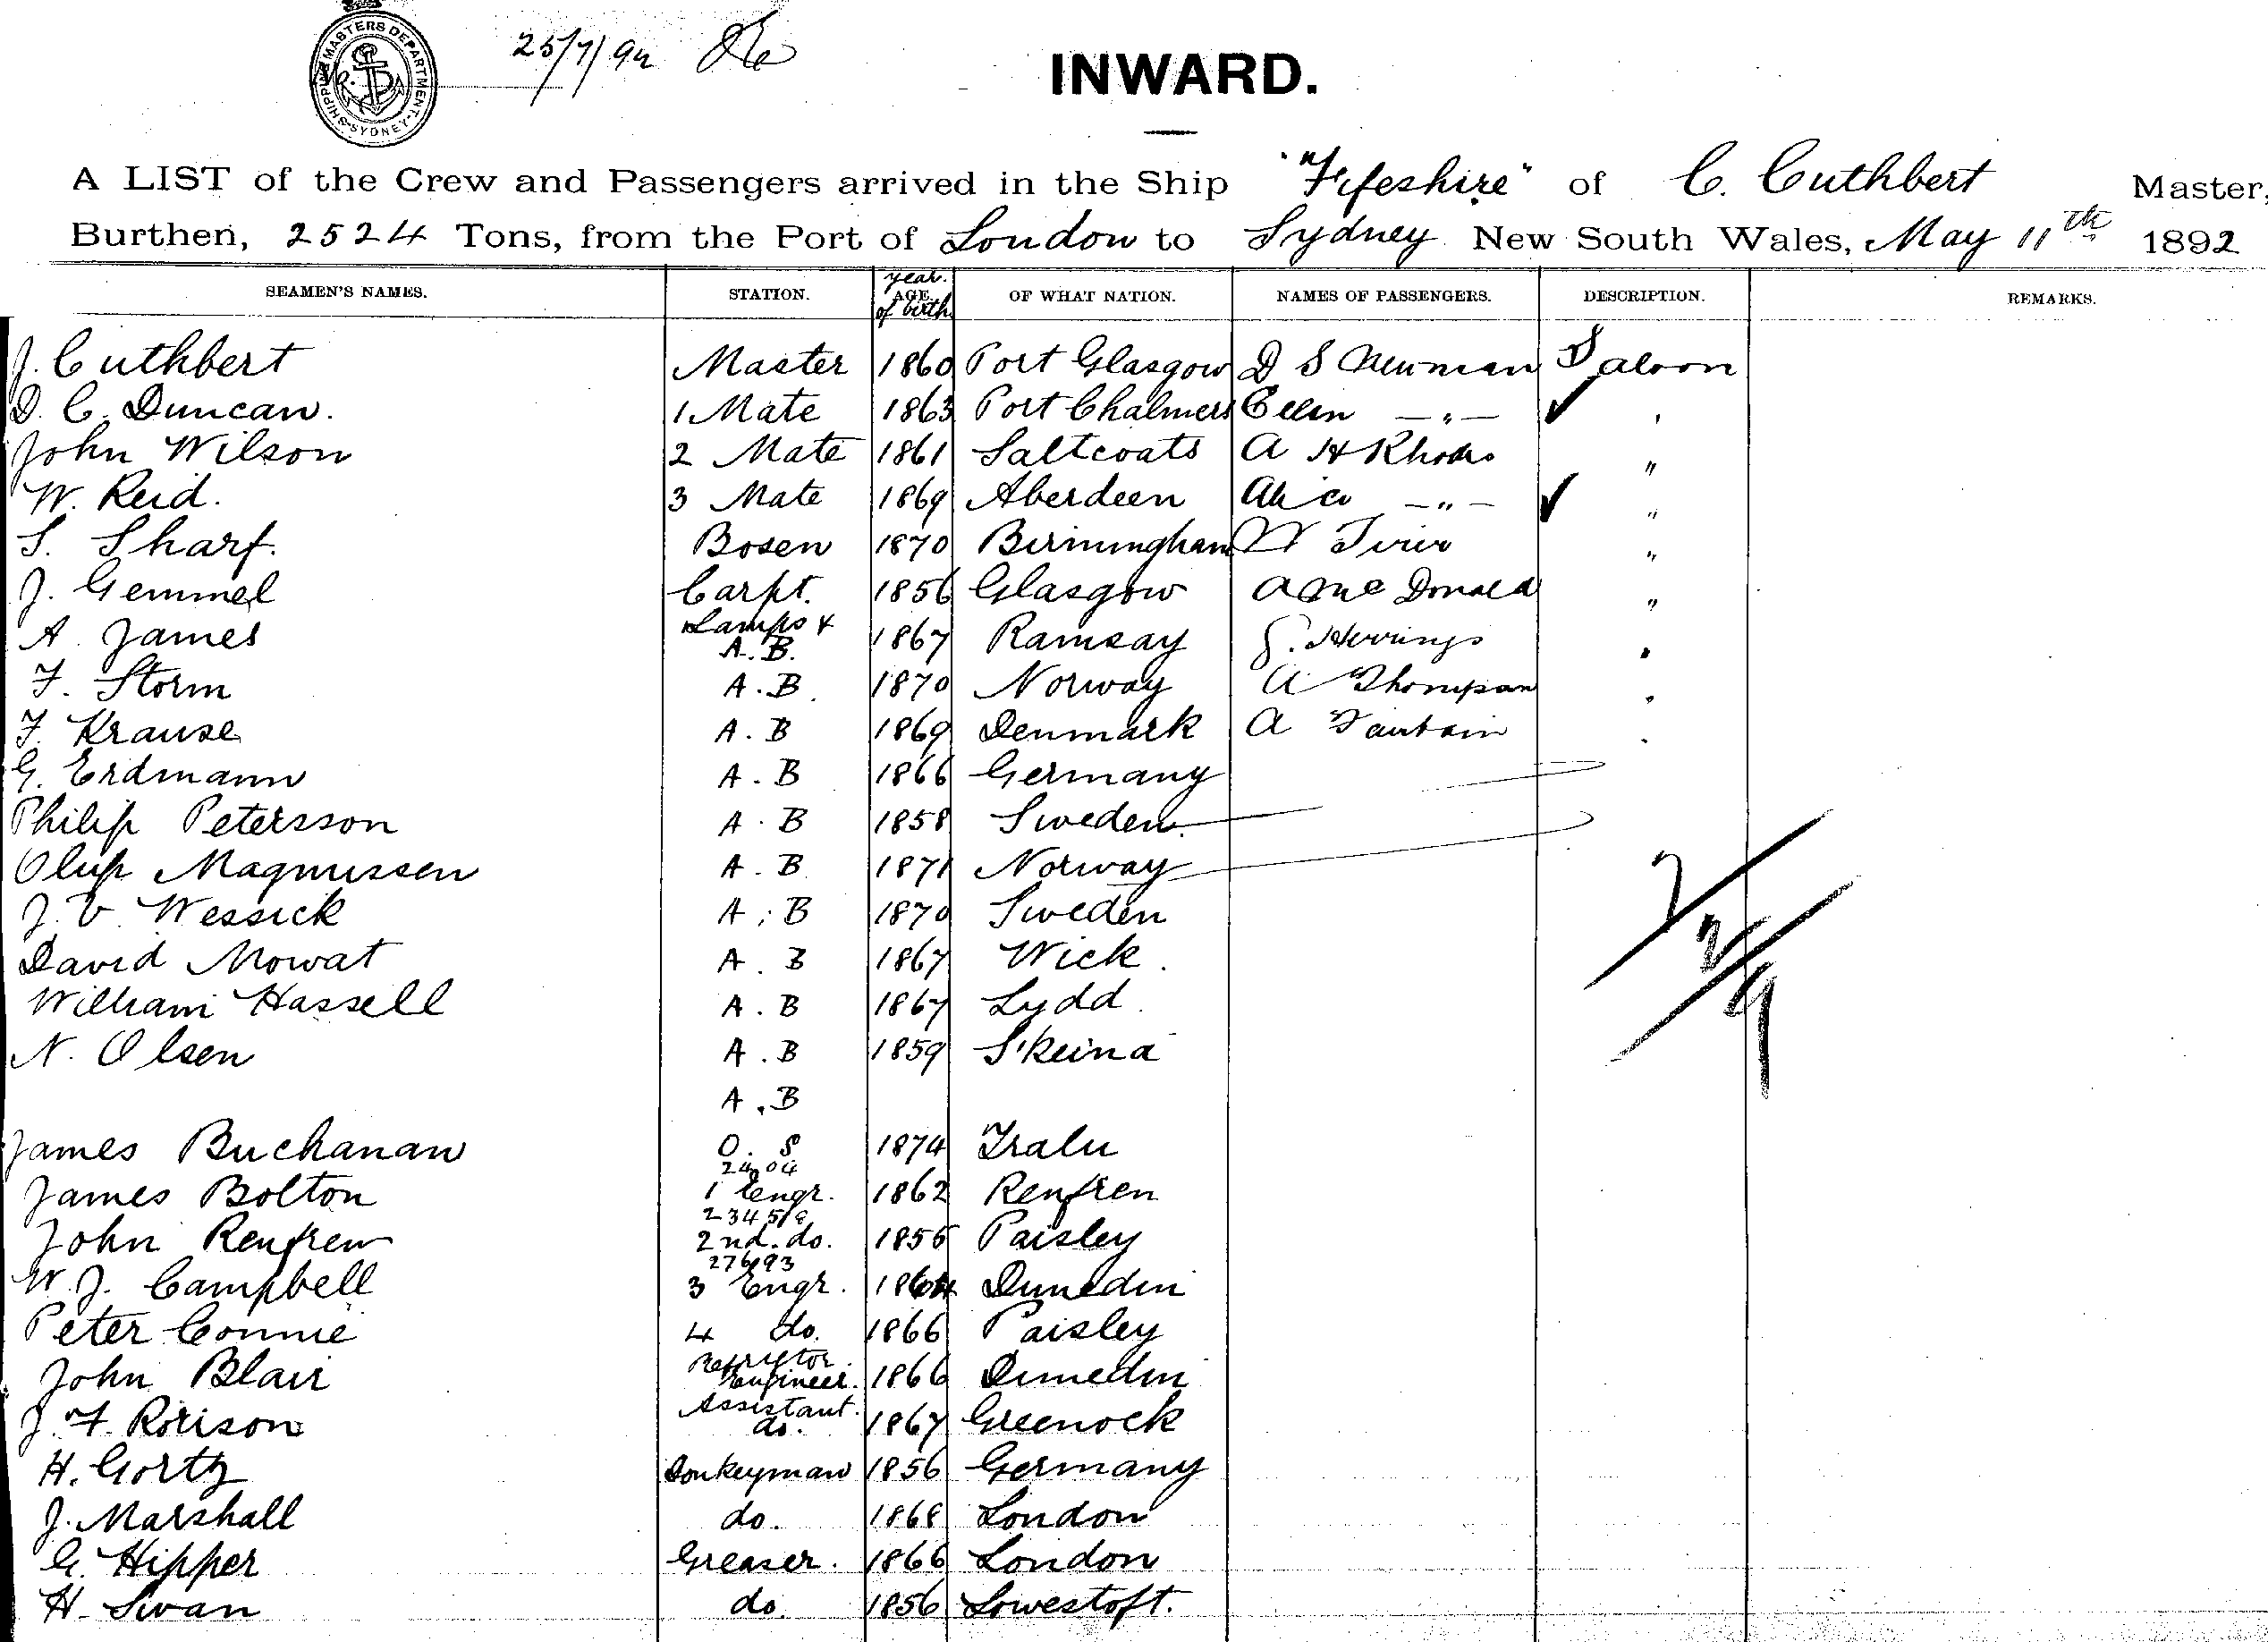 SHIPPING MASTERS DEPARTMENT SYDNEY
25/7/92
INWARD.
A LIST of the Crew and Passengers arrived in the Ship "Fifeshire" of C. Cuthbert Master,
Burthen, 2524 Tons, from the Port of London to Sydney New South Wales, May 11th 1892
SEAMEN'S NAMES. STATION. year. AGE of birth OF WHAT NATION. NAMES OF PASSENGERS. DESCRIPTION. REMARKS.
J. Cuthbert Master 1860 Port Glasgow D S Newman Saloon
D. C. Duncan. 1 Mate 1863 Port Chalmers Ellen — „ — ✓ "
John Wilson 2 Mate 1861 Saltcoats A H Rhodes "
W. Reid. 3 Mate 1869 Aberdeen Alice — „ — ✓ "
S. Sharf. Bosen 1870 Birmingham W "
J. Gemmel Carpt. 1856 Glasgow A McDonald "
A. James Lamps & A.B. 1867 Ramsay Herrings "
F. Storm A.B. 1870 Norway A Thompson "
F. Krause A.B 1869 Denmark A "
G. Erdmann A.B 1866 Germany
Philip Petersson A.B 1858 Sweden
Olup Magnussen A.B 1871 Norway
J. V. Wessick A.B 1870 Sweden
David Mowat A.B 1867 Wick.
William Hassell A.B 1867 Lydd.
N. Olsen A.B 1859 Skeina
A.B
James Buchanan O.S 1874 Tralu
2404
James Bolton 1 Engr. 1862 Renfren
23451
John Renfrew 2nd. do. 1856 Paisley
27693
W. J. Campbell 3 Engr. 1864 Dunedin
Peter Connie 4 do. 1866 Paisley
John Blair Engineer. 1866 Dunedin
J. F. Rorison Assistant. do. 1867 Greenock
H. Gortz Donkeyman 1856 Germany
J. Marshall do. 1868 London
G. Hipper Greaser. 1866 London
H. Swan do. 1856 Lowestoft.